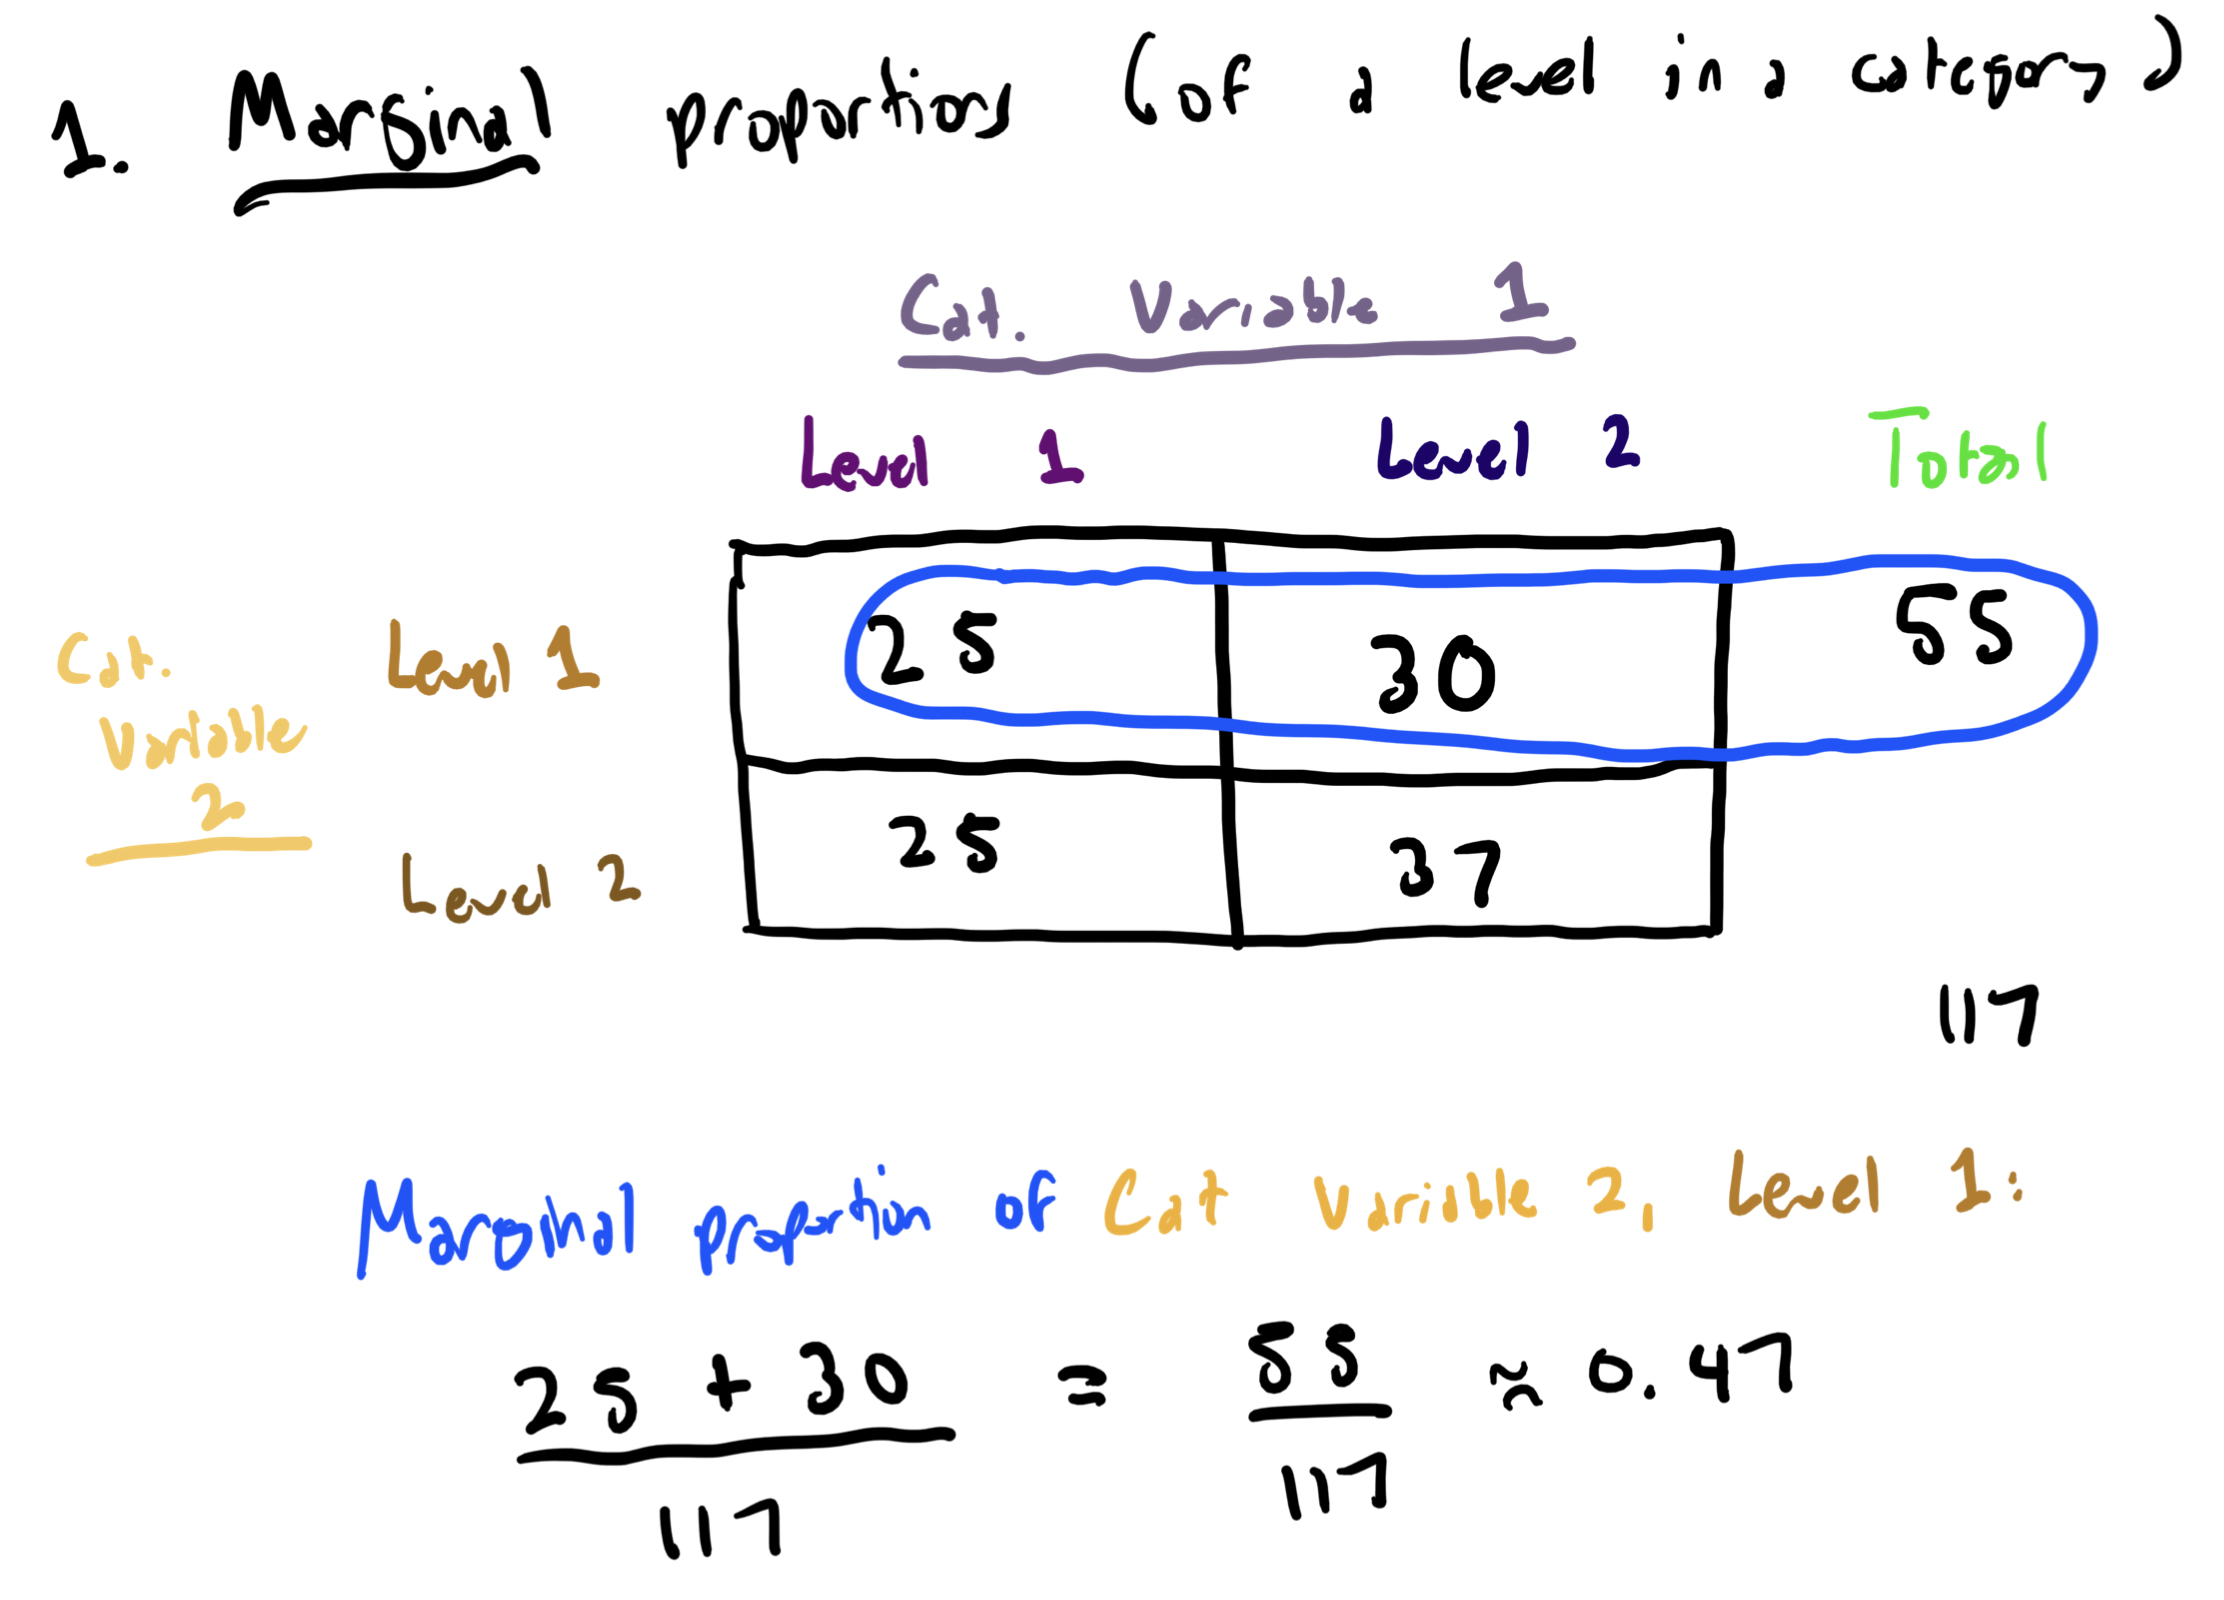 1. Marginal proportions (of a level in a category)
Cat. Variable 1
Level 1 Level 2 Total
Cat. Variable 2
Level 1 25 30 55
Level 2 25 37
117
Marginal proportion of Cat Variable 2, Level 1:
25 + 30 = 55 ≈ 0.47
117 117